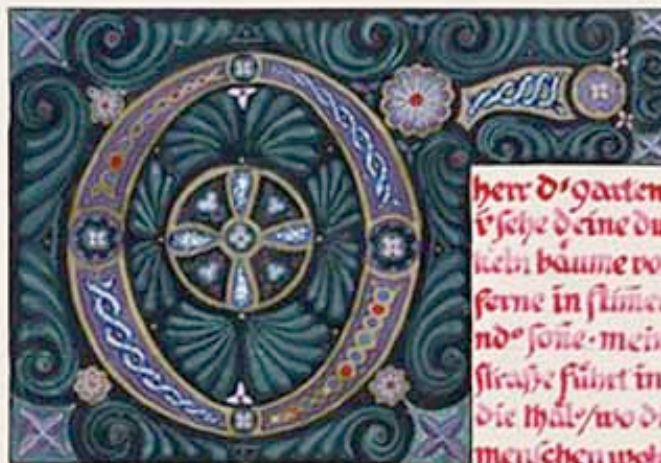 O
herr d' garten
i' sehe deine du
keln bäume vo
ferne in stime
nd° soñe · mein
straße führt in
die thäl-/wo d
menschen woh